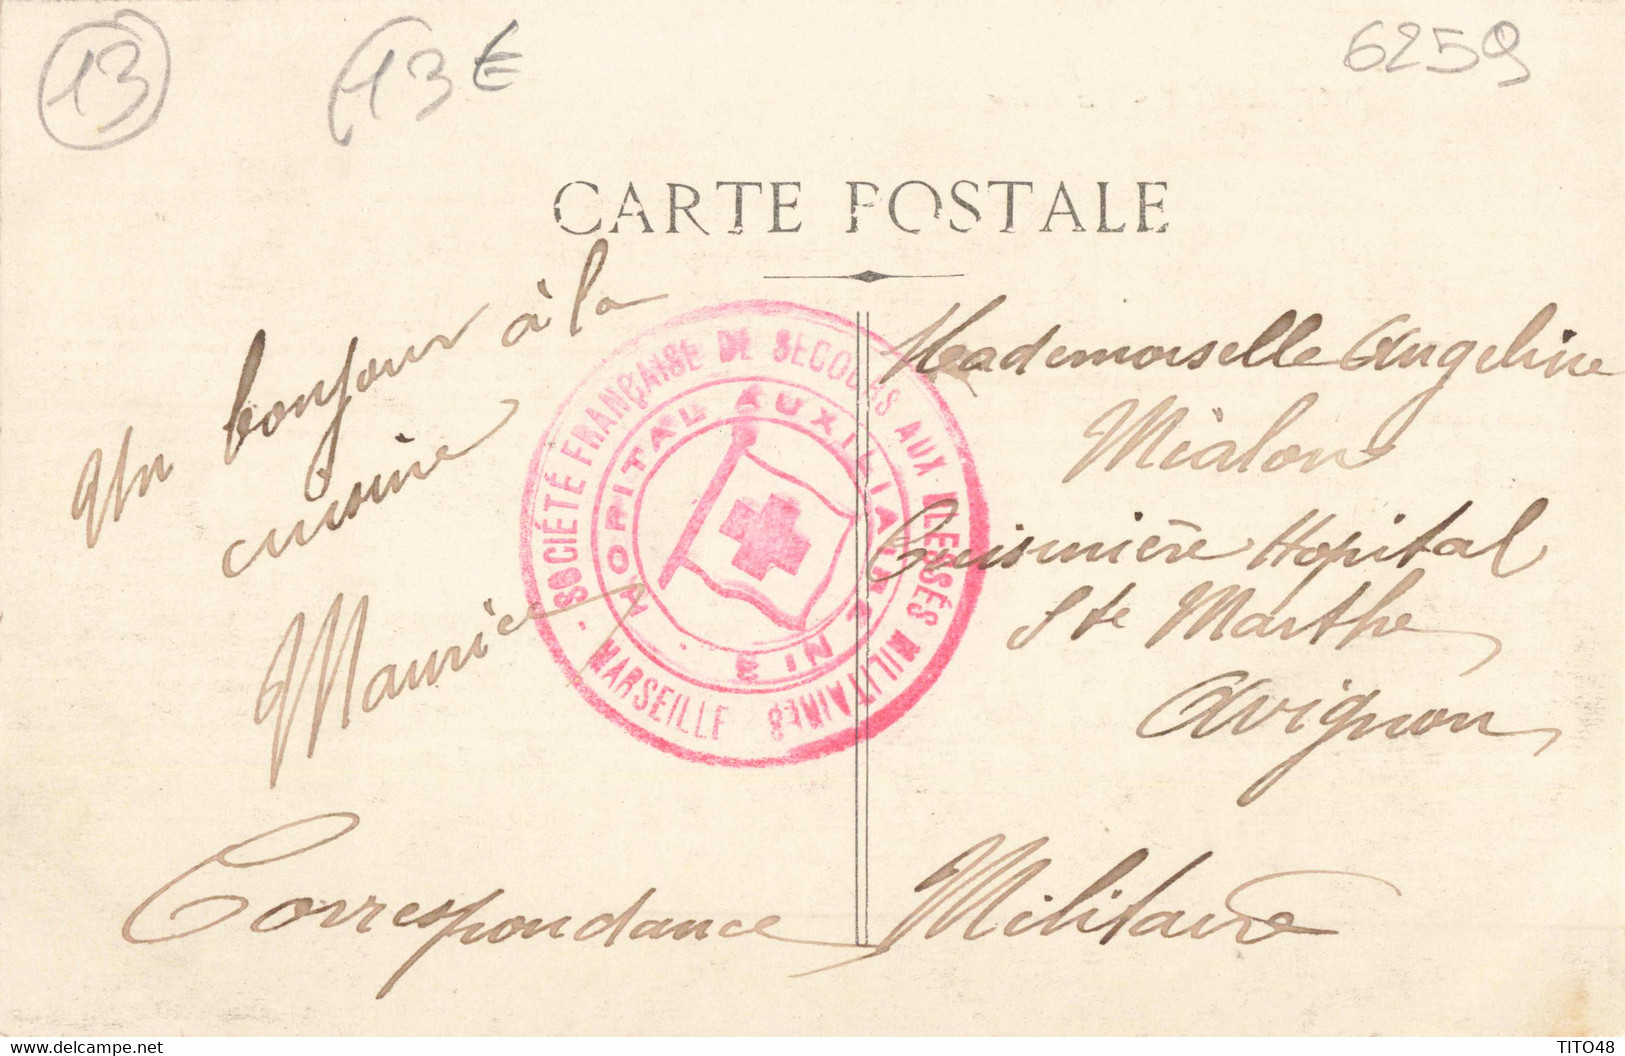 13
13 €
6259
CARTE POSTALE
Un bonjour à la
cuisine
Maurice
SOCIÉTÉ FRANÇAISE DE SECOURS AUX BLESSÉS MILITAIRES
- MARSEILLE -
HOPITAL AUXILIAIRE N° 3
Mademoiselle Angeline
Mialon
Cuisinière Hopital
Ste Marthe
Avignon
Correspondance Militaire
delcampe.net
TITO48